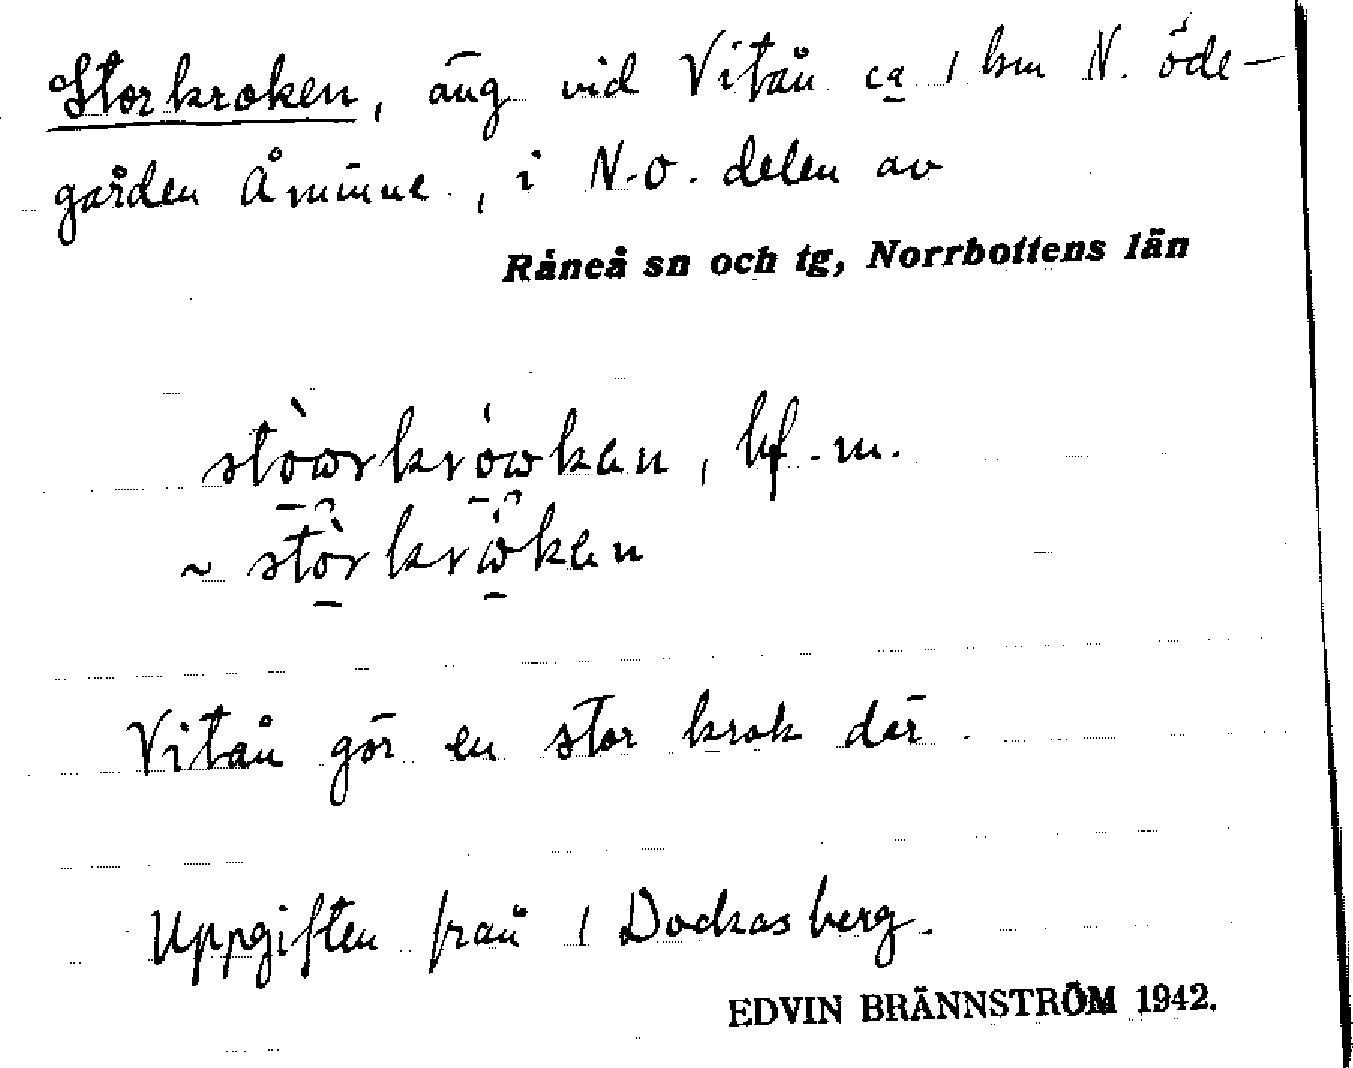 Storkroken, äng vid Vitån ca 1 km N. öde-
gården Åminne, i N.O. delen av
Råneå sn och tg, Norrbottens län
stòωrkrówkan, bf. m.
~ stòrkrω̇kan
Vitån gör en stor krok där.
Uppgiften från 1 Dockasberg.
EDVIN BRÄNNSTRÖM 1942.